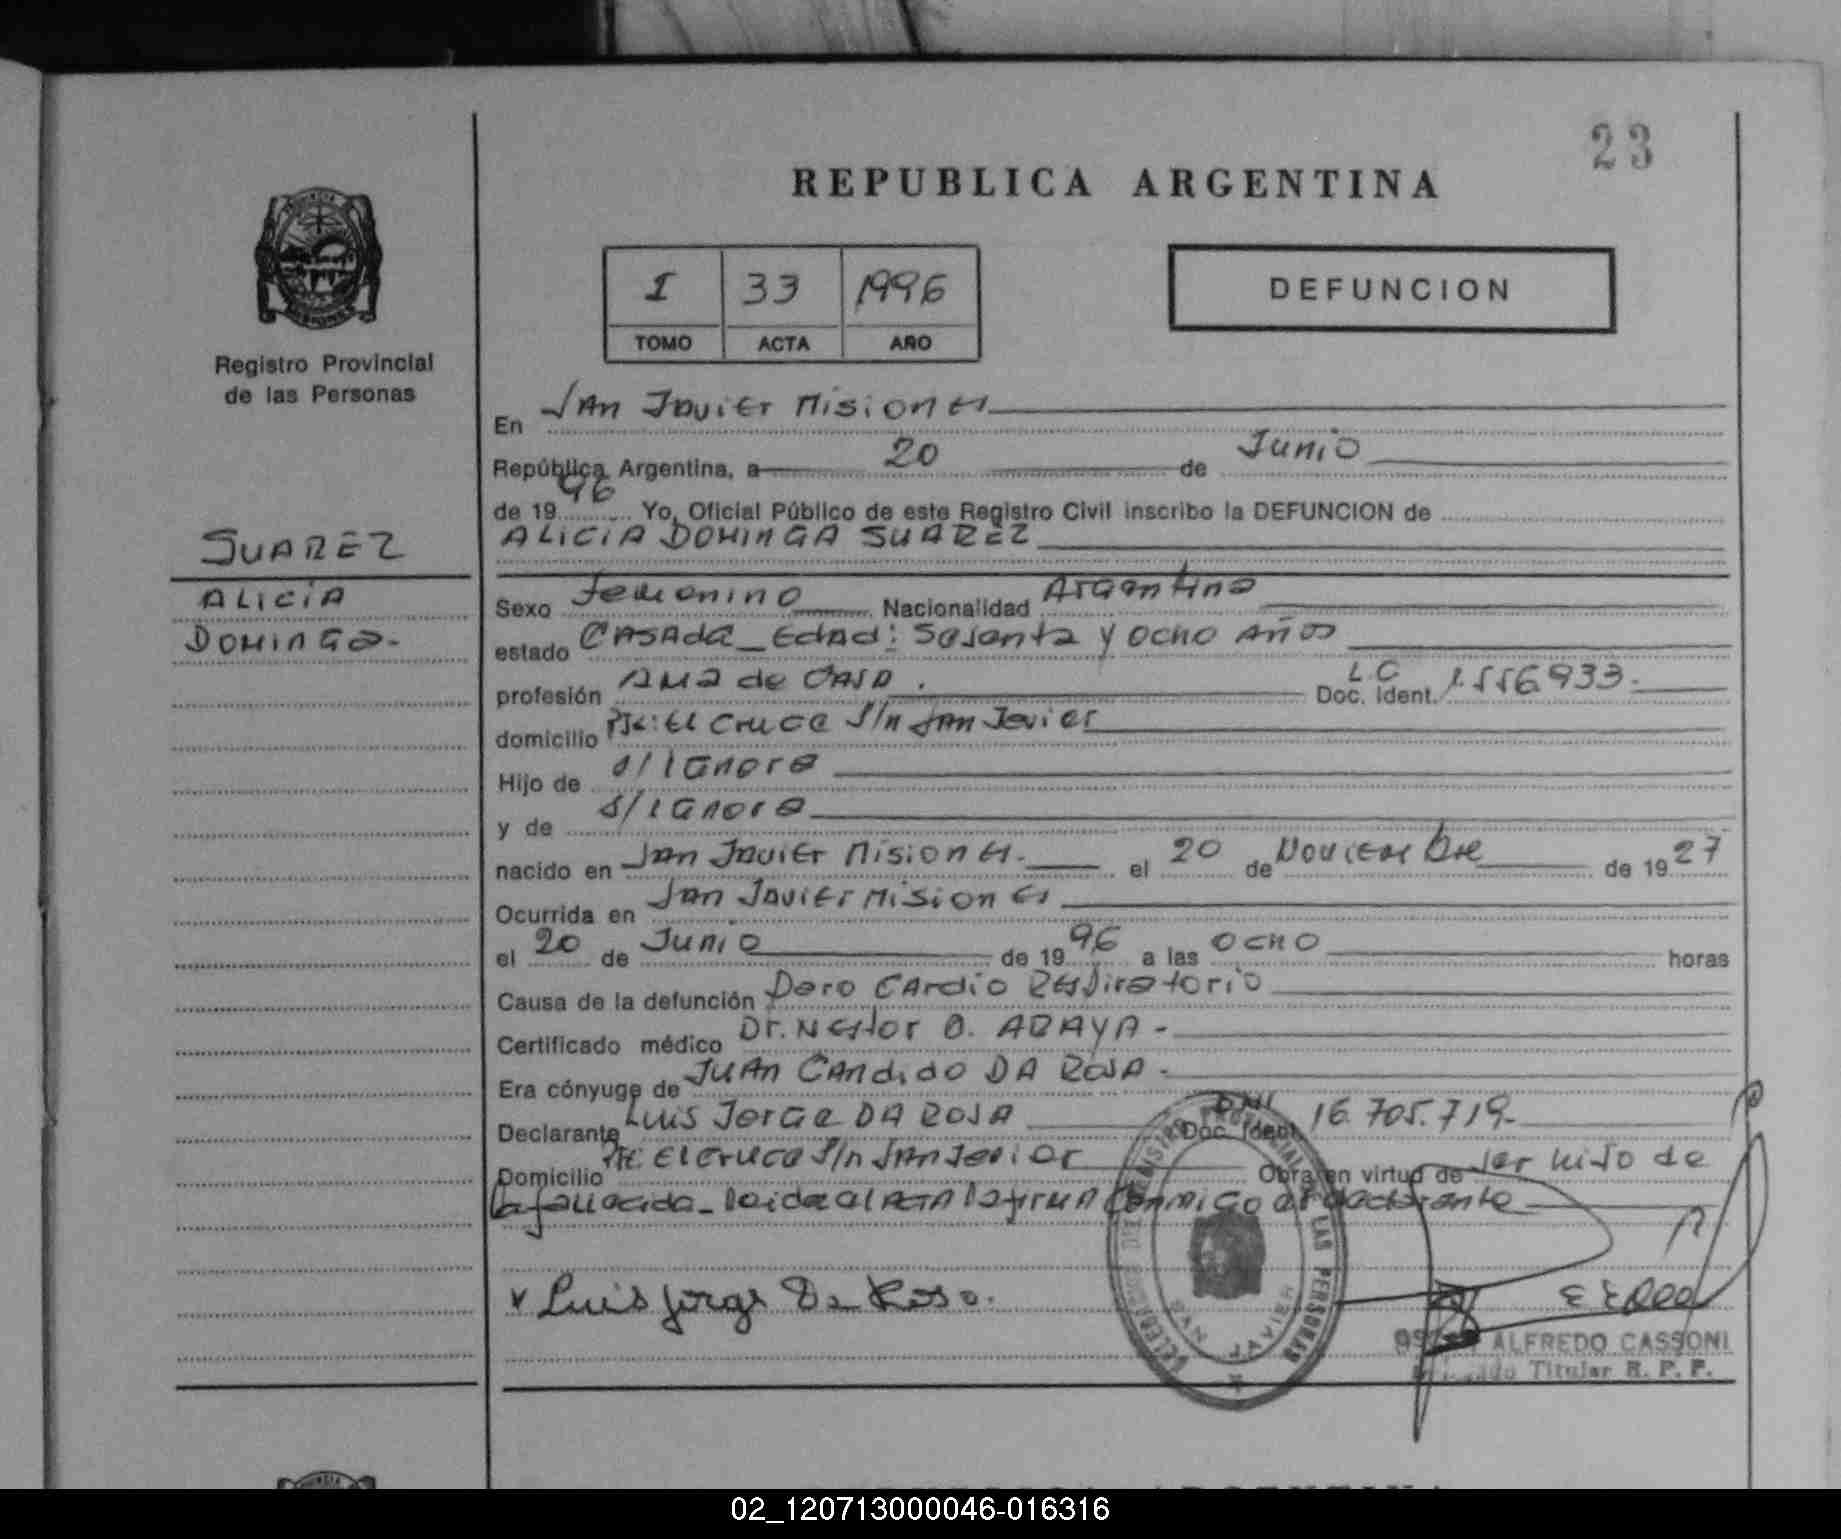 23
REPUBLICA ARGENTINA
I 33 1996
TOMO ACTA AÑO
DEFUNCION
Registro Provincial
de las Personas
SUAREZ
ALICIA
DOMINGA-
En San Javier Misiones
República Argentina, a 20 de Junio
de 1996 Yo, Oficial Público de este Registro Civil inscribo la DEFUNCION de
ALICIA DOMINGA SUAREZ
Sexo Femenino Nacionalidad Argentina
estado Casada_Edad: Sesenta y ocho años
profesión Ama de Casa. Doc. Ident. L.C 1.556.933.
domicilio El Cruce S/n San Javier
Hijo de s/ignora
y de s/ignora
nacido en San Javier Misiones. el 20 de Noviembre de 1927
Ocurrida en San Javier Misiones
el 20 de Junio de 1996 a las ocho horas
Causa de la defunción Paro Cardio Respiratorio
Certificado médico Dr. Nestor O. ARAYA-
Era cónyuge de Juan Candido DA ROSA-
Declarante Luis Jorge DA ROSA DNI Doc. Ident. 16.705.719-
Domicilio El Cruce S/n San Javier Obra en virtud de ser hijo de
la fallecida_Leida el acta la firma conmigo el declarante
Luis Jorge Da Rosa.
SAN JAVIER
LAS PERSONAS
ALFREDO CASSONI
Titular R. P. P.
02_120713000046-016316